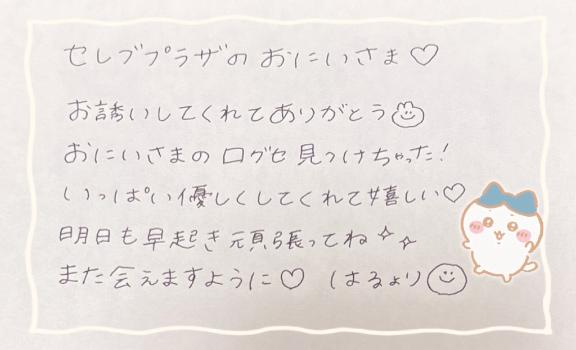 セレブプラザの おにいさま♡
お誘いしてくれてありがとう
おにいさまの口グセ見つけちゃった!
いっぱい優しくしてくれて嬉しい♡
明日も早起き頑張ってね
また会えますように♡ はるより